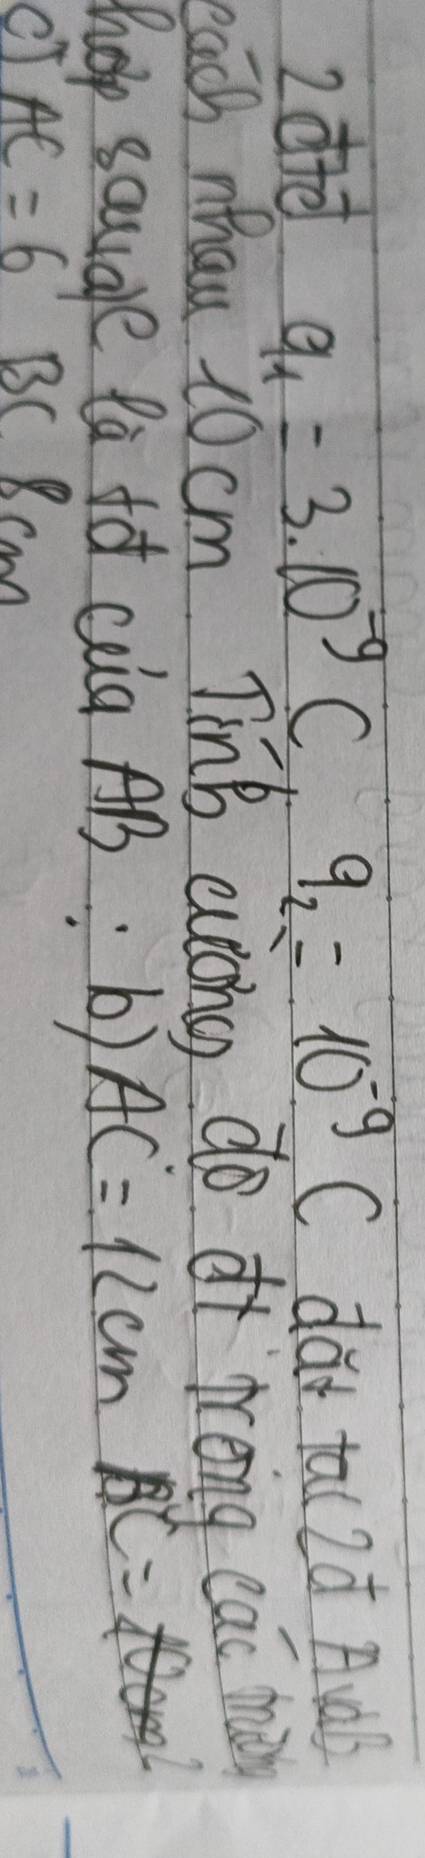 2 đtđ q₁ = 3.10⁻⁹ C q₂ = 10⁻⁹ C đặt tại 2đ A và B
cách nhau 10 cm Tính cường độ đt trong các
hợp sau a) C là tđ của AB ; b) AC = 12cm BC =
c) AC = 6 BC 8cm